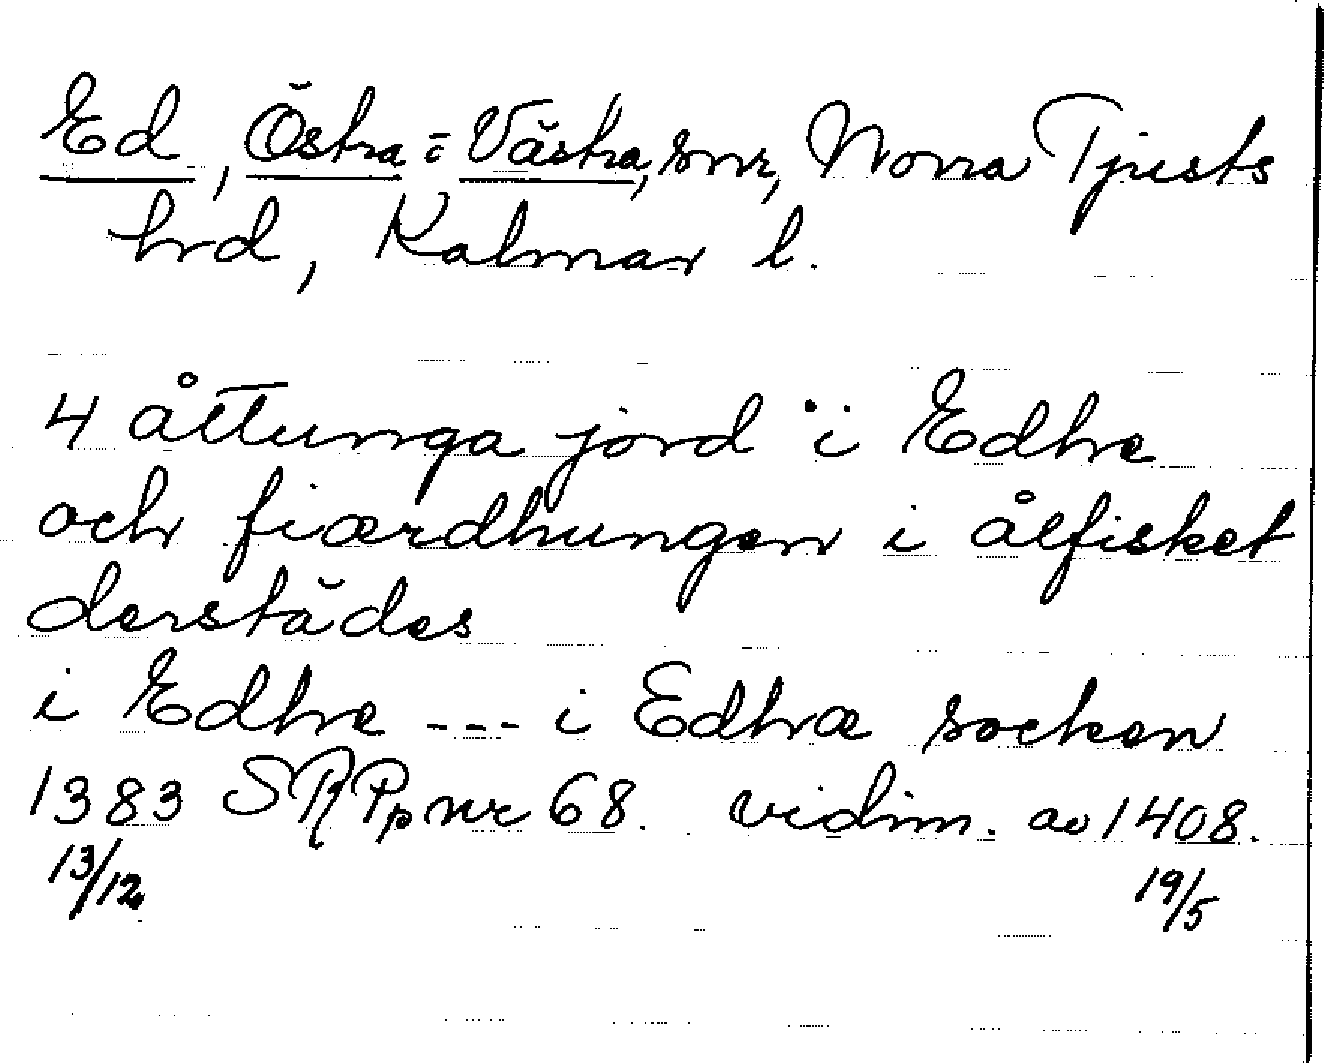 Ed, Östra = Västra, snr, Norra Tjusts
hrd, Kalmar l.
4 åttunga jord i Edhe
och fiærdhungen i ålfisket
derstädes
i Edhe --- i Edhæ socken
1383 SRPp nr 68. vidim. av 1408.
13/12 19/5